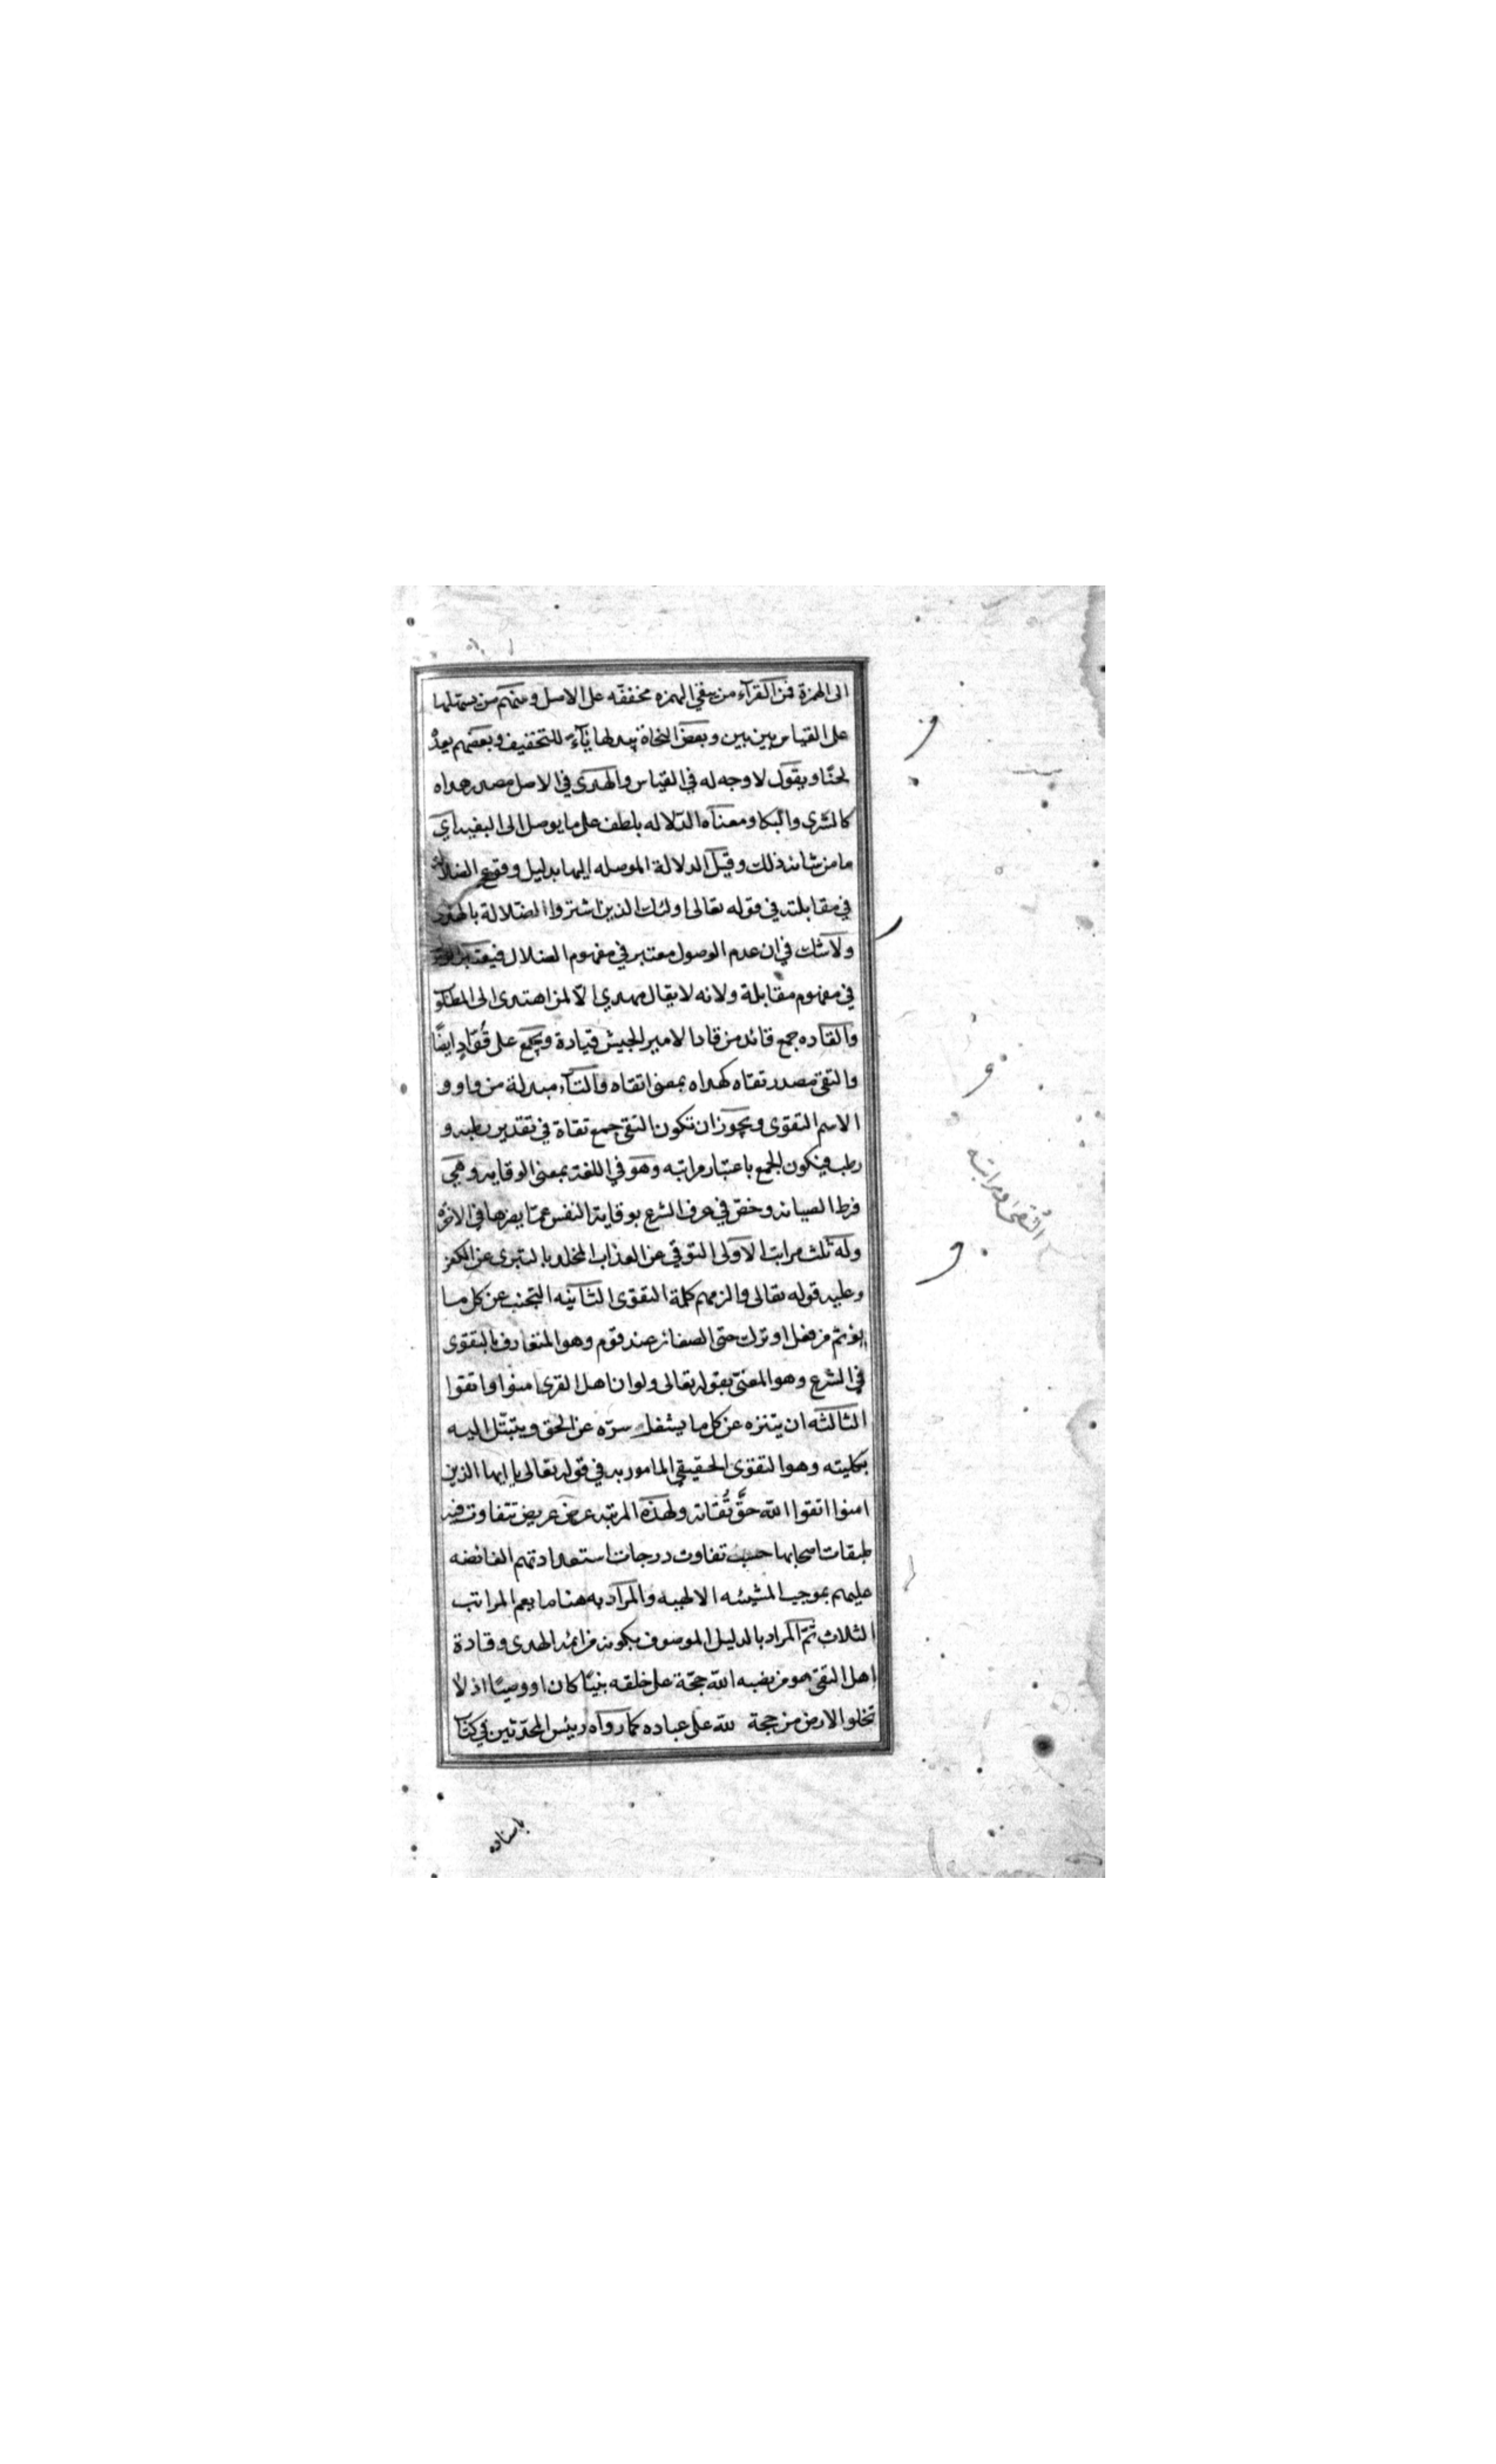 الى الهمزة فمن القرآء من يبقي الهمزه مخففه على الاصل ومنهم من يسهلها
على القياس بين بين وبعض النحاة يبدلها يآءً للتخفيف وبعضهم يعدّه
لحنًا ويقول لا وجه له في القياس والهدى في الاصل مصدر هداه
كالسّرى والبكا ومعناه الدّلاله بلطف على ما يوصل الى البغيه اي
ما من شانه ذلك وقيل الدلالة الموصله اليها بدليل وقوع الضلاله
في مقابلته في قوله تعالى اولئك الذين اشتروا الضّلالة بالهدى
ولا شك في ان عدم الوصول معتبر في مفهوم الضلال فيعتبر
في مفهوم مقابلة ولانه لا يقال مهدي الّا لمن اهتدى الى المطلوب
والقاده جمع قائد من قاد الامير الجيش قيادة ويجمع على قُوّادٍ ايضًا
والتقى مصدر تقاه كهداه بمعنى اتقاه والتآء مبدلة من واو و
الاسم التقوى ويجوز ان تكون التقى جمع تقاة في تقدير رطبه و
رطب فيكون الجمع باعتبار مراتبه وهو في اللغة بمعنى الوقايه وهي
فرط الصيانه وخصّ في عرف الشرع بوقاية النفس عمّا يضرها في الاخره
وله ثلث مراتب الاولى التوقي عن العذاب المخلد بالتبرى عن الكفر
وعليه قوله تعالى والزمهم كلمة التقوى الثانيه التجنب عن كل ما
يؤثم من فعل او ترك حتى الصغائر عند قوم وهو المتعارف بالتقوى
في الشرع وهو المعنىّ بقوله تعالى ولو ان اهل القرى امنوا واتقوا
الثالثه ان يتنزه عن كل ما يشغل سرّه عن الحق ويتبتّل اليه
بكليته وهو التقوى الحقيقي المامور به في قوله تعالى يا ايها الذين
امنوا اتقوا اللّه حقَّ تُقاته ولهذه المرتبه عرض عريض تتفاوت فيه
طبقات اصحابها حسب تفاوت درجات استعداداتهم الفائضه
عليهم بموجب المشيئه الالهيه والمراد به هنا ما يعم المراتب
الثلاث ثمّ المراد بالدليل الموصوف بكونه من ائمة الهدى وقادة
اهل التقى هو من نصبه اللّه حجّة على خلقه نبيًّا كان او وصيًّا اذ لا
تخلو الارض من حجة للّه على عباده كما رواه رئيس المحدّثين في كتاب
باسناده
التُّقى ومراتبه